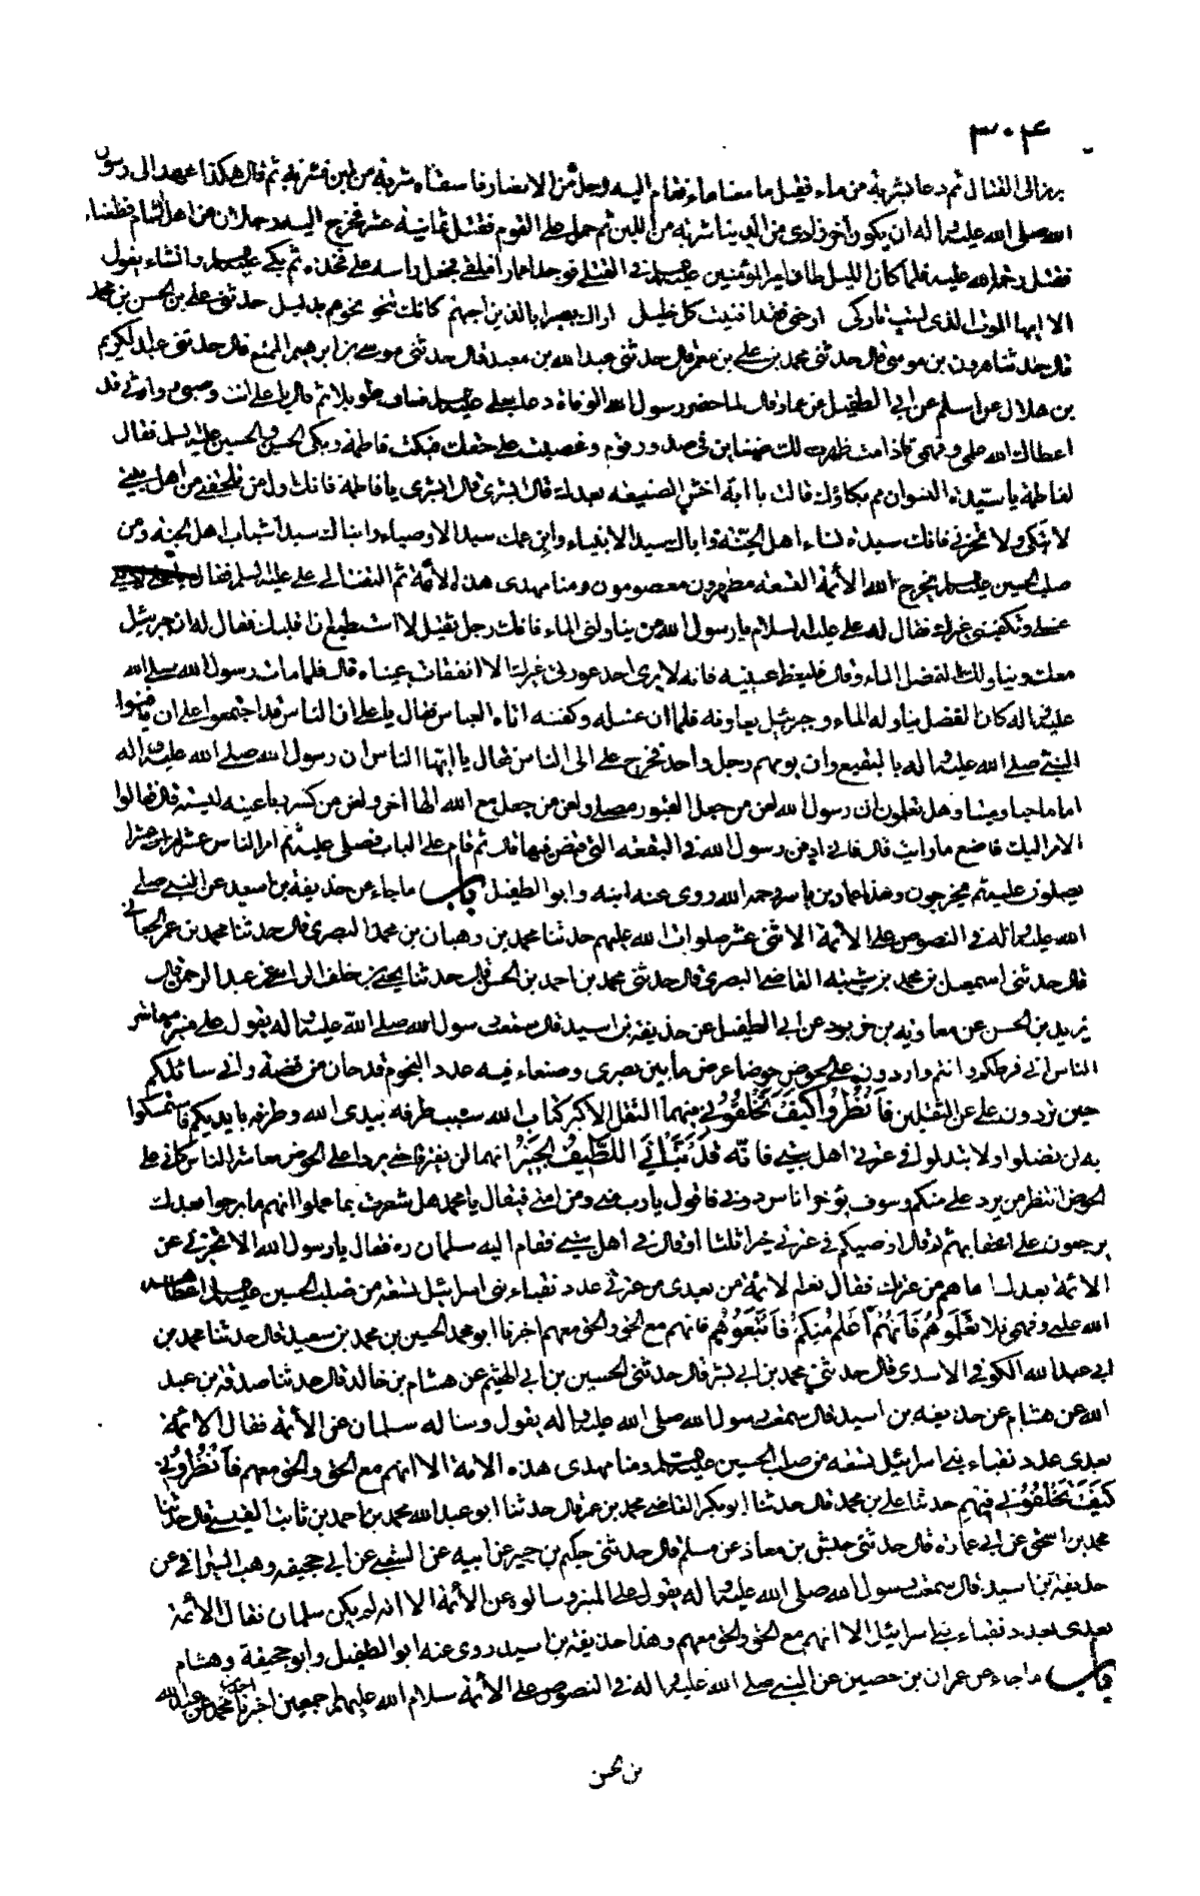 ٣٠۴
برز الى القتال ثم دعا بشربة من ماء فقيل ما معنا ماء فقام اليه رجل من الانصار فاسقاه شربة من لبن فشربه ثم قال هكذا عهد الى رسول
الله صلى الله عليه واله ان يكون اخر زادى من الدنيا شربة من اللبن ثم حمل على القوم فقتل ثمانية عشر فخرج اليه رجلان من اهل الشام فطعناه
فقتل رحمة الله عليه فلما كان الليل طاف امير المؤمنين عليه السلم فى القتلى فوجد عمارا ملقى فجعل راسه على فخذه ثم بكى عليه السلم وانشاء يقول
الا ايها الموت الذى لست تاركى ارحنى فقد افنيت كل خليل اراك بصيرا بالذين احبهم كانك تنحو نحوهم بدليل حدثنى على بن الحسن بن محمد
قال حدثنا هرون بن موسى قال حدثنى محمد بن على بن معمر قال حدثنى عبد الله بن معبد قال حدثنى موسى بن ابرهيم الممتع قال حدثنى عبد الكريم
بن هلال عن اسلم عن ابى الطفيل عن عمار قال لما حضر رسول الله الوفاة دعا بعلى عليه السلم فساره طويلا ثم قال يا على انت وصيى وارثى قد
اعطاك الله علمى وفهمى فاذا مت ظهرت لك ضغاين فى صدور قوم وغصبت على حقك فبكت فاطمة وبكى الحسن والحسين عليهم السلم فقال
لفاطمة يا سيدة النسوان مم بكاؤك قالت يا ابه اخشى الضيعة بعدك قال ابشرى يا فاطمة فانك اول من يلحقنى من اهل بيتى
لا تبكى ولا تحزنى فانك سيدة نساء اهل الجنة واباك سيد الانبياء وابن عمك سيد الاوصياء وابناك سيدا شباب اهل الجنة ومن
صلب الحسين عليه السلم يخرج الله الأئمة التسعة مطهرون معصومون ومنا مهدى هذه الأمة ثم التفت الى على عليه السلم فقال
غسلى وتكفينى غيرك فقال له على عليه السلام يا رسول الله من يناولنى الماء فانك رجل ثقيل لا استطيع ان اقلبك فقال له ان جبرئيل
معك ويناولك الفضل الماء وقال فليغط عينيه فانه لا يرى احد عورتى غيرك الا انفقات عيناه قال فلما مات رسول الله صلى الله
عليه واله كان الفضل يناوله الماء وجبرئيل يعاونه فلما ان غسله وكفنه اتاه العباس فقال يا على ان الناس قد اجتمعوا على ان يدفنوا
النبى صلى الله عليه واله بالبقيع وان يومهم رجل واحد فخرج على الى الناس فقال يا ايها الناس ان رسول الله صلى الله عليه واله
اماما حيا وميتا وهل تعلمون ان رسول الله لعن من جعل القبور مصلى ولعن من جعل مع الله الها اخر ولعن من كسر رباعيته لثته قال فقالوا
الامر اليك فاصنع ما رايت قال فانى ادفن رسول الله فى البقعة التى قبض فيها قال ثم قام على الباب فصلى عليه ثم امر الناس عشرا عشرا
يصلون عليه ثم يخرجون وهذا عمار بن ياسر رحمه الله روى عنه ابنه وابو الطفيل باب ما جاء عن حذيفة بن اسيد عن النبى صلى
الله عليه واله فى النصوص على الأئمة الاثنى عشر صلوات الله عليهم حدثنا محمد بن وهبان بن محمد البصرى قال حدثنا محمد بن عمر الجعابى
قال حدثنى اسمعيل بن محمد بن شيبة القاضى البصرى قال حدثنى محمد بن احمد بن الحسن قال حدثنا يحيى بن خلف الراسى عن عبد الرحمن قال
يزيد بن الحسن عن معاوية بن خربوذ عن ابى الطفيل عن حذيفة بن اسيد قال سمعت رسول الله صلى الله عليه واله يقول على منبره معاشر
الناس انى فرطكم وانتم واردون على الحوض حوضا عرض ما بين بصرى وصنعاء فيه عدد النجوم قدحان من فضة وانى سائلكم
حين تردون على عن الثقلين فَانْظُرُوا كَيْفَ تَخْلُفُونِى فيهما الثقل الاكبر كتاب الله سبب طرفه بيدى الله وطرفه بايديكم فاستمسكوا
به لن تضلوا ولا تبدلوا فى عترتى اهل بيتى فانّه قَدْ نَبَّاَنِىَ اللَّطِيفُ الْخَبِيرُ انهما لن يفترقا حتى يردا على الحوض معاشر الناس كانى على
الحوض انتظر من يرد على منكم وسوف يؤخر اناس دونى فاقول يا رب منى ومن امتى فيقال يا محمد هل شعرت بما عملوا انهم ما برحوا بعدك
يرجعون على اعقابهم ثم قال اوصيكم فى عترتى خيرا ثلثا او قال فى اهل بيتى فقام اليه سلمان ره فقال يا رسول الله الا تخبرنى عن
الائمة بعدك اما هم من عترتك فقال نعم الائمة من بعدى من عترتى عدد نقباء بنى اسرائيل تسعة من صلب الحسين عليه السلم اعطاهم
الله علمى وفهمى فلا تُعَلِّمُوهُمْ فَاِنَّهُمْ اَعْلَمُ مِنْكُمْ فَاتَّبِعُوهُمْ فانهم مع الحق والحق معهم اخبرنا ابو محمد الحسين بن محمد بن سعيد قال حدثنا محمد بن
ابى عبد الله الكوفى الاسدى قال حدثنى محمد بن ابى بشر قال حدثنى الحسين بن ابى الهيثم عن هشام بن خالد قال حدثنا صدقة بن عبد
الله عن هشام عن حذيفة بن اسيد قال سمعت رسول الله صلى الله عليه واله يقول وساله سلمان عن الأئمة فقال الائمة
بعدى عدد نقباء بنى اسرائيل تسعة من صلب الحسين عليه السلم ومنا مهدى هذه الامة الا انهم مع الحق والحق معهم فَانْظُرُوا
كَيْفَ تَخْلُفُونِى فيهم حدثنا على بن محمد قال حدثنا ابو بكر القاضى محمد بن عمر قال حدثنا ابو عبد الله محمد بن احمد بن ثابت القيسى قال حدثنا
محمد بن اسحق عن ابى عمارة قال حدثنى حبش بن معاذ عن مسلم قال حدثنى حكيم بن جبير عن ابيه عن الشعبى عن ابى جحيفة وهب السوائى عن
حذيفة بن اسيد قال سمعت رسول الله صلى الله عليه واله يقول على المنبر وسالوه عن الأئمة الا انه لم يكن سلمان فقال الأئمة
بعدى بعدد نقباء بنى اسرائيل الا انهم مع الحق والحق معهم وهذا حذيفة بن اسيد روى عنه ابو الطفيل وابو جحيفة وهشام
باب ما جاء عن عمران بن حصين عن النبى صلى الله عليه واله فى النصوص على الأئمة سلام الله عليهم اجمعين اخبرنا محمد بن عبد الله